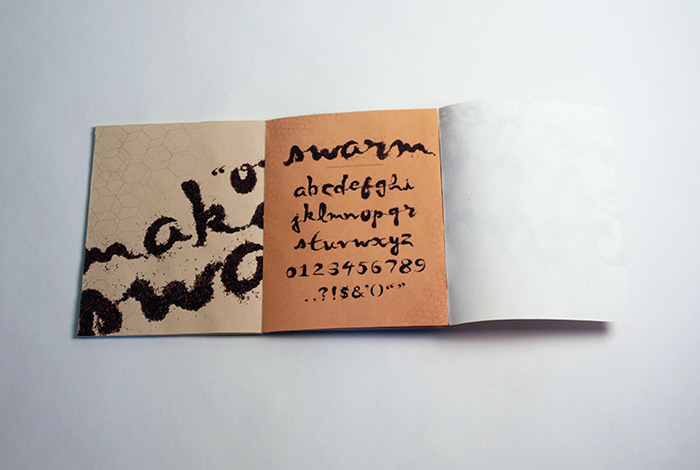 “o
mak
swa
swarm
abcdefghi
jklmnopqr
stuvwxyz
0123456789
..?!$&'()“”